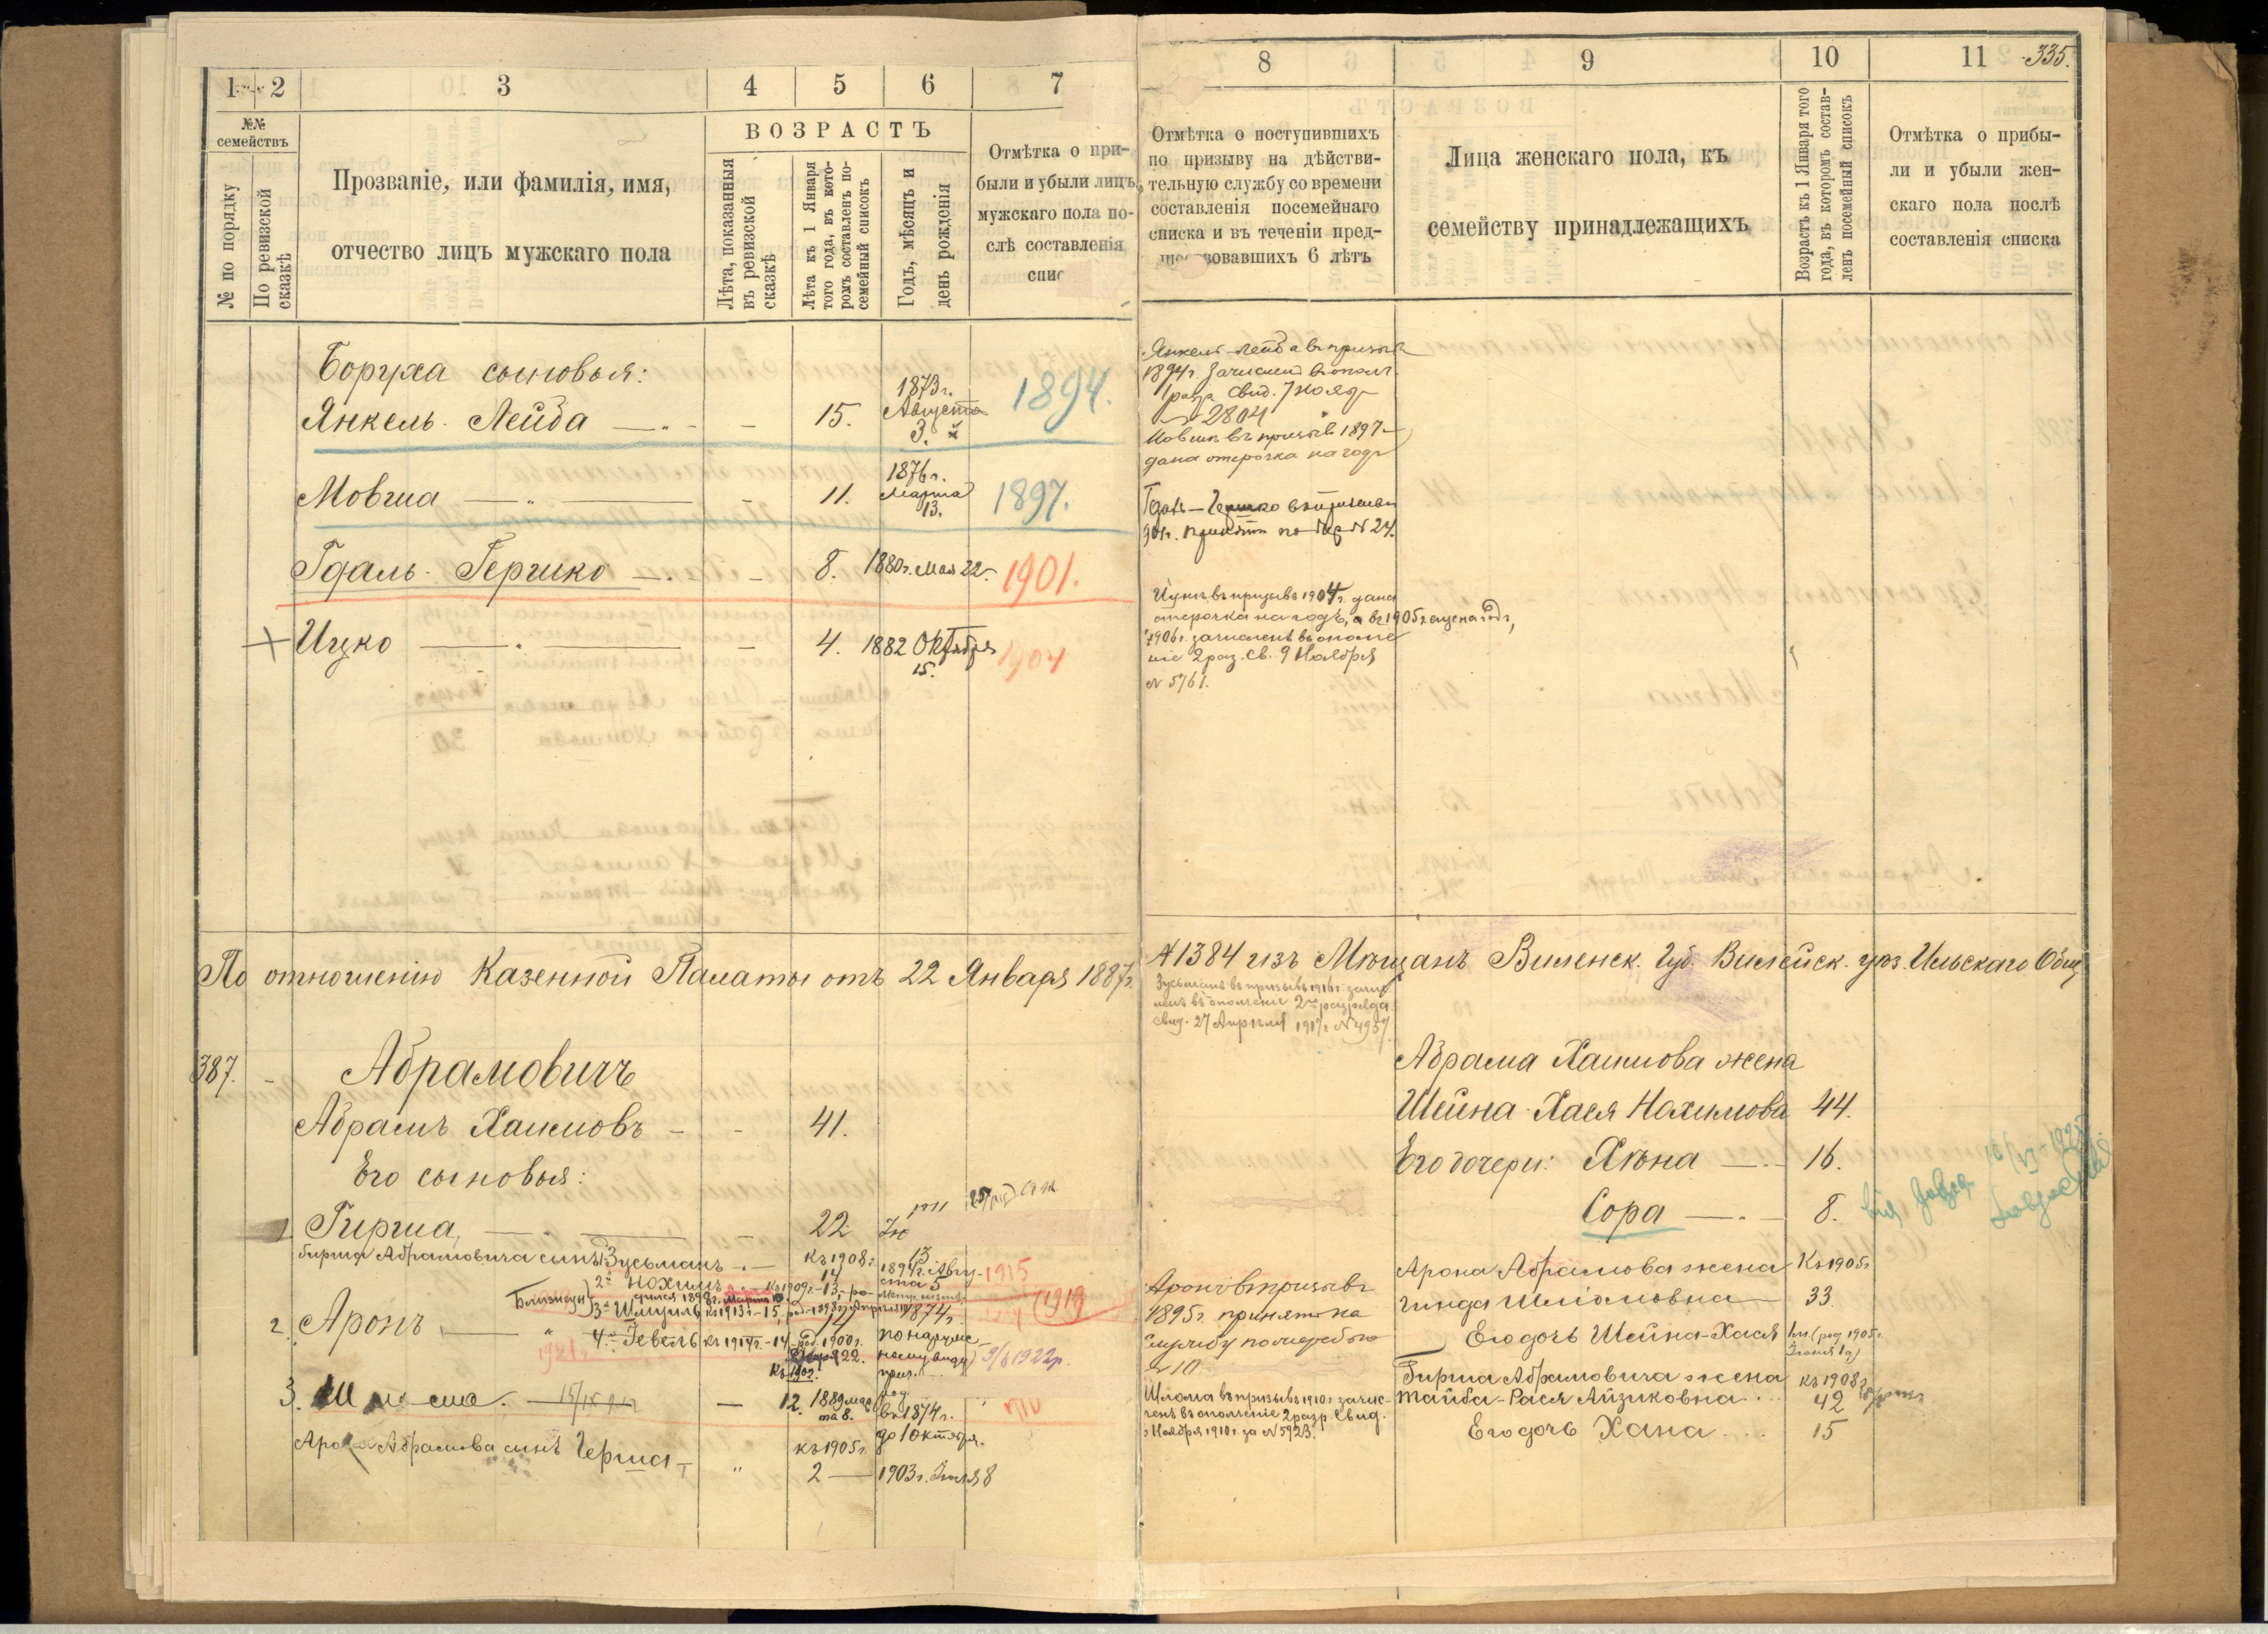 1 2 3 4 5 6 7
№№ семействъ
№ по порядку
По ревизской сказкѣ
Прозваніе, или фамилія, имя,
отчество лицъ мужскаго пола
ВОЗРАСТЪ
Лѣта, показанныя
въ ревизской
сказкѣ
Лѣта къ 1 Января
того года, въ кото-
ромъ составленъ по-
семейный списокъ
Годъ, мѣсяцъ и
день рожденія
Отмѣтка о при-
были и убыли лицъ
мужскаго пола по-
слѣ составленія
спис
Боруха сыновья:
Янкель-Лейба 15. 1873г. Августа 3. 1894.
Мовша 11. 1876г. Марта 13. 1897.
Гдаль-Гершко 8. 1880г. Мая 22. 1901.
Ицко 4. 1882 Октября 15. 1904
По отношенію Казенной Палаты отъ 22 Января 1887г.
387. Абрамовичъ
Абрамъ Хаимовъ 41.
Его сыновья:
1 Гирша 22
Гирши Абрамовича сынъ Зусьманъ къ 1908г. 14 1894г. Августа 5 1915
2й Нохимъ къ 1909г.-13, ро-
Близнецы дился 1898г. Марта
3й Шмуилъ къ 1913г.-15, род. 1898г. 1919
2. Аронъ 1874г.
4й Гевель къ 1914г.-14 род. 1900г. по наруж-
1921г. 22. ному виду 9/8 1922г.
къ 1902. приз.
3. Шлема 12. 1889 марта 8.
род. въ 1874г.
до 1 октября.
Арона Абрамова сынъ Герша къ 1905г.
2 1903г. Іюля 8
8 9 10 11 335.
Отмѣтка о поступившихъ
по призыву на дѣйстви-
тельную службу со времени
составленія посемейнаго
списка и въ теченіи пред-
шествовавшихъ 6 лѣтъ
Лица женскаго пола, къ
семейству принадлежащихъ
Возрастъ къ 1 Января того
года, въ которомъ состав-
ленъ посемейный списокъ
Отмѣтка о прибы-
ли и убыли жен-
скаго пола послѣ
составленія списка
Янкель-Лейба въ призыв
1894г. зачислен в ополч.
1 разр. Свид. 7 Ноябр
№ 2804
Мовша въ призывъ 1897
дана отсрочка на годъ
Гдаль-Гершко въ призыв
901г. принятъ по жер № 24.
Ицко въ призывъ 1904г. дана
отсрочка на годъ, а въ 1905г. еще на годъ,
1906г. зачисленъ въ ополче
ніе 2 раз. Св. 9 Ноября
№ 5761.
№ 1384 изъ Мѣщанъ Виленск. Губ. Вилейск. уѣз. Ильскаго Общ
Зусьманъ въ призывъ 1916г. зачис
ленъ въ ополченіе 2го разряда
Свид. 27 Апрѣля 1917г. № 4957
Абрама Хаимова жена
Шейна-Хася Нохимова 44.
Его дочери: Хѣна 16.
Сора 8.
Арона Абрамова жена къ 1905г
Гинда Шліомовна 33
Его дочь Шейна-Хася 1м. (род 1905г.
Аронъ въ призывъ
1895г. принятъ на
службу по жеребью
№ 10
Гирша Абрамовича жена къ 1908г
Тайба-Рася Айзиковна 42
Его дочь Хана 15
Шлома въ призывъ 1910г. зачис-
ленъ въ ополченіе 2 разр. Свид.
Ноября 1910г. за № 5923.